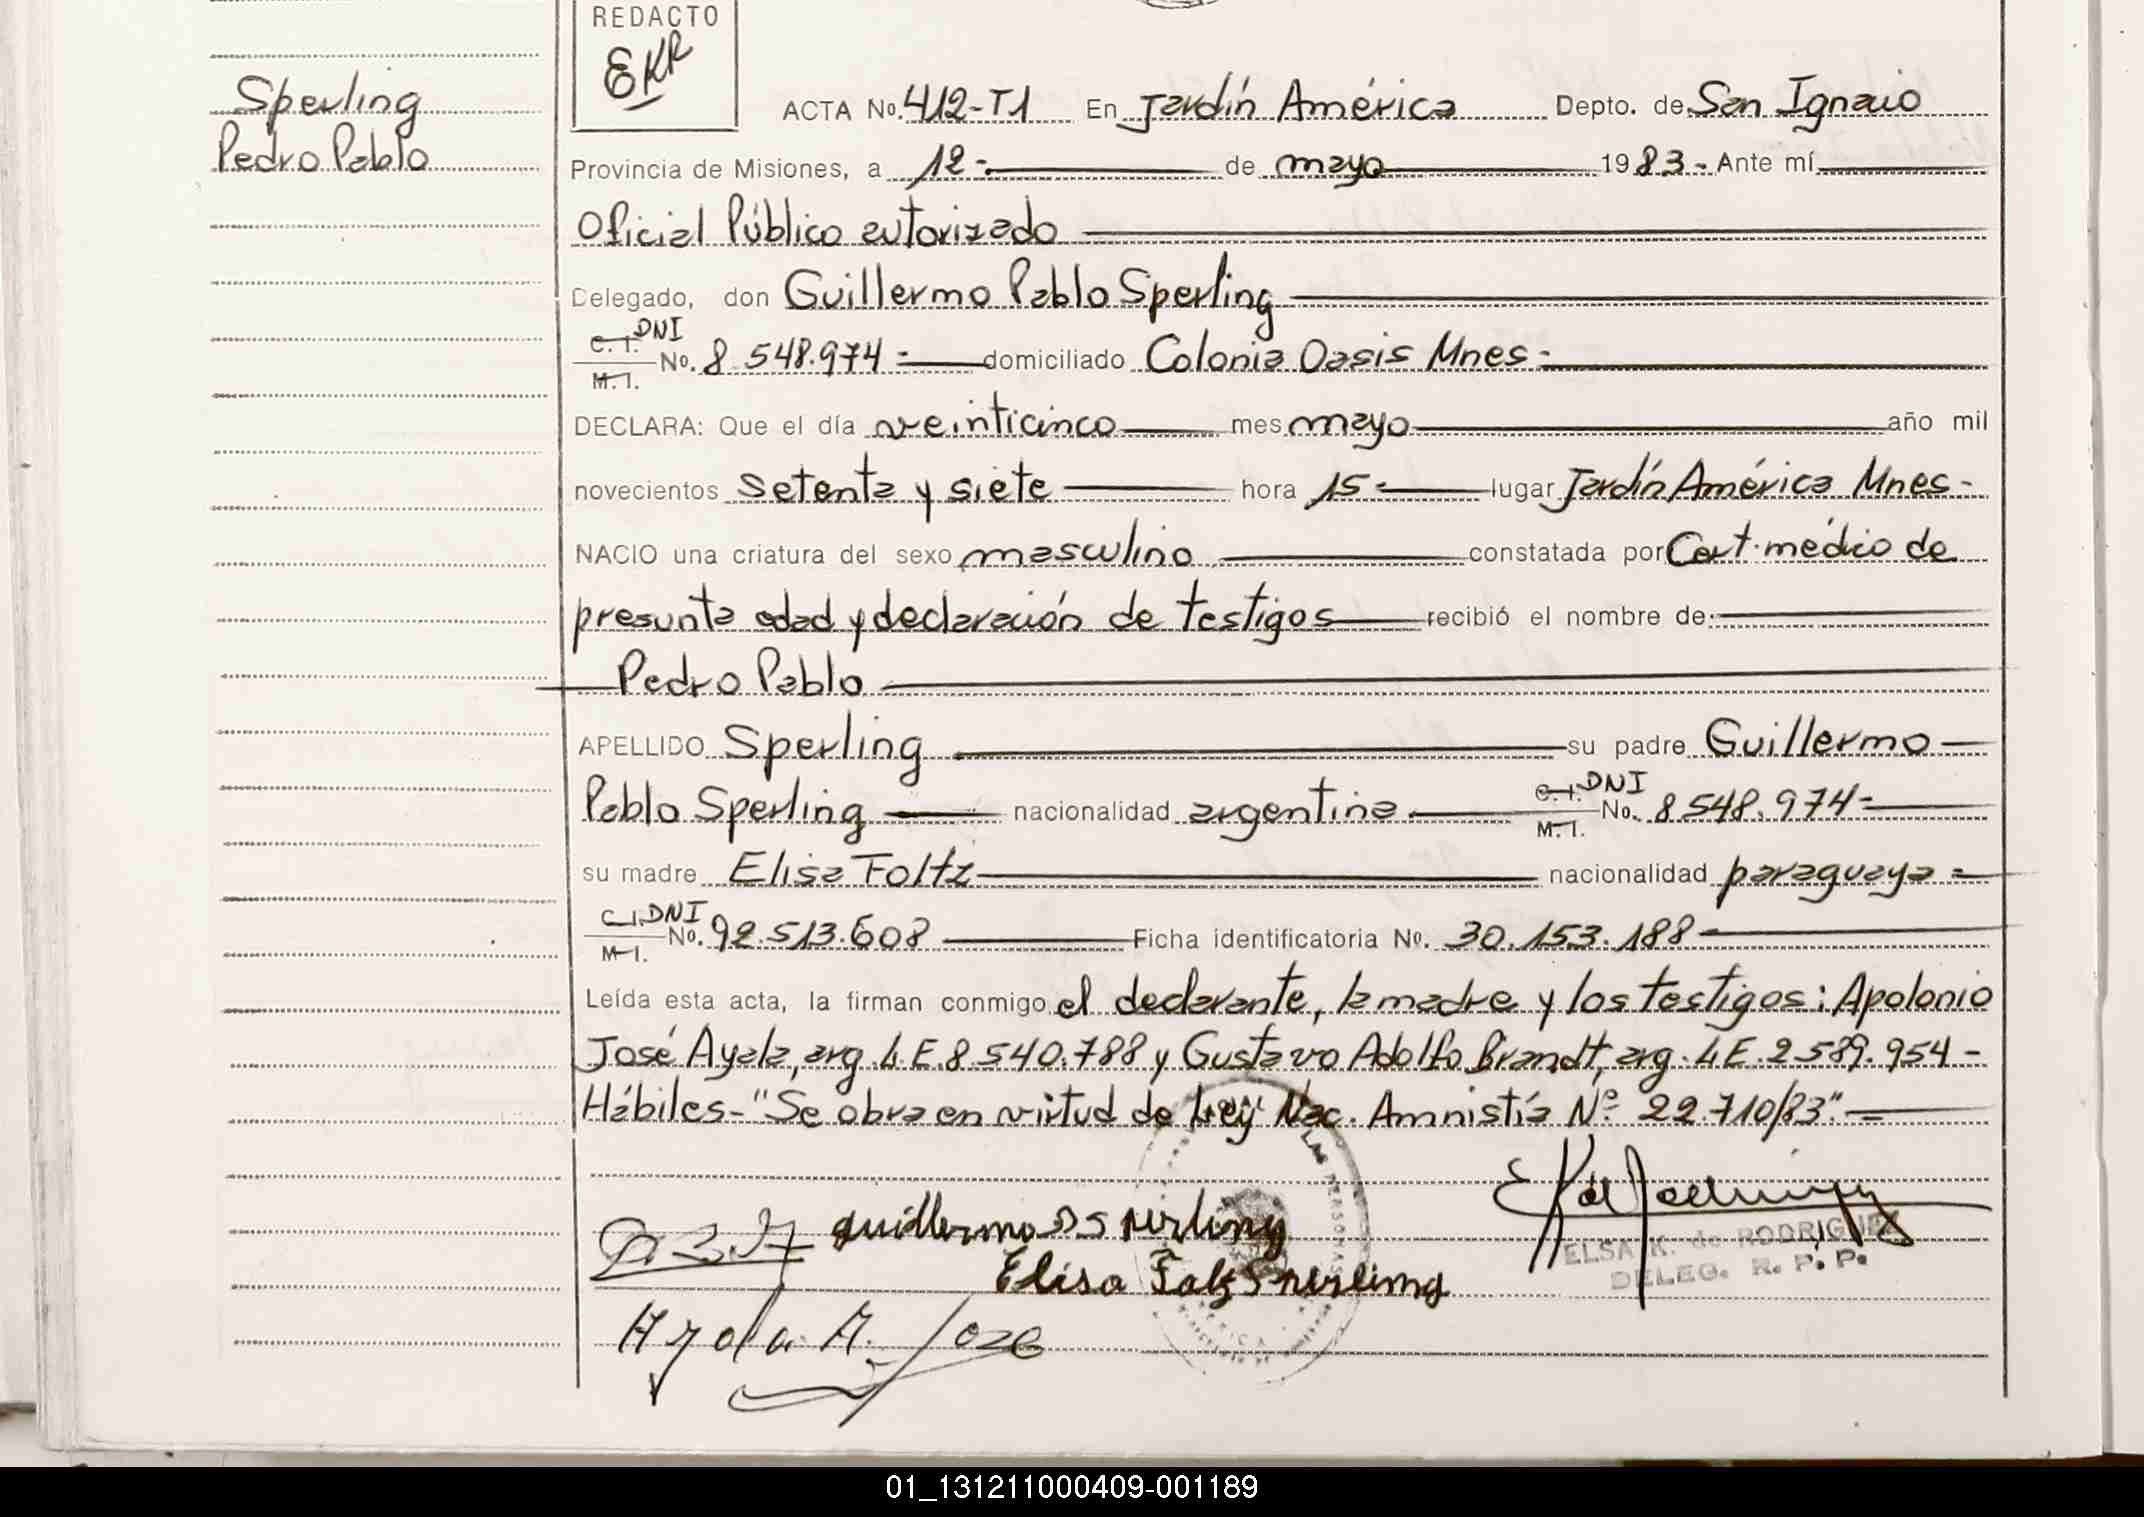 REDACTO
EKR
Sperling
Pedro Pablo
ACTA No. 412-T1 En Jardín América Depto. de San Ignacio
Provincia de Misiones, a 12 - de mayo 1983 - Ante mí
Oficial Público autorizado
Delegado, don Guillermo Pablo Sperling
C. I. DNI
M. I. No. 8.548.974 = domiciliado Colonia Oasis Mnes -
DECLARA: Que el día veinticinco mes mayo año mil
novecientos setenta y siete hora 15 - lugar Jardín América Mnes -
NACIO una criatura del sexo masculino constatada por Cert. médico de
presunta edad y declaración de testigos recibió el nombre de:
Pedro Pablo
APELLIDO Sperling su padre Guillermo
Pablo Sperling nacionalidad argentina C. I. DNI M. I. No. 8548.974 =
su madre Elisa Foltz nacionalidad paraguaya =
C. I. DNI M. I. No. 92.513.608 Ficha identificatoria No. 30.153.188
Leída esta acta, la firman conmigo el declarante, la madre y los testigos: Apolonio
José Ayala, arg. L.E. 8.540.788 y Gustavo Adolfo Brandt, arg. L.E. 2.589.954 -
Hábiles - "Se obra en virtud de Ley Nac. Amnistía Nº 22.710/83". =
Guillermo P Sperling
Elisa Foltz Sperling
ELSA K. de RODRIGUEZ
DELEG. R. P. P.
Ayala A. Jose
01_131211000409-001189